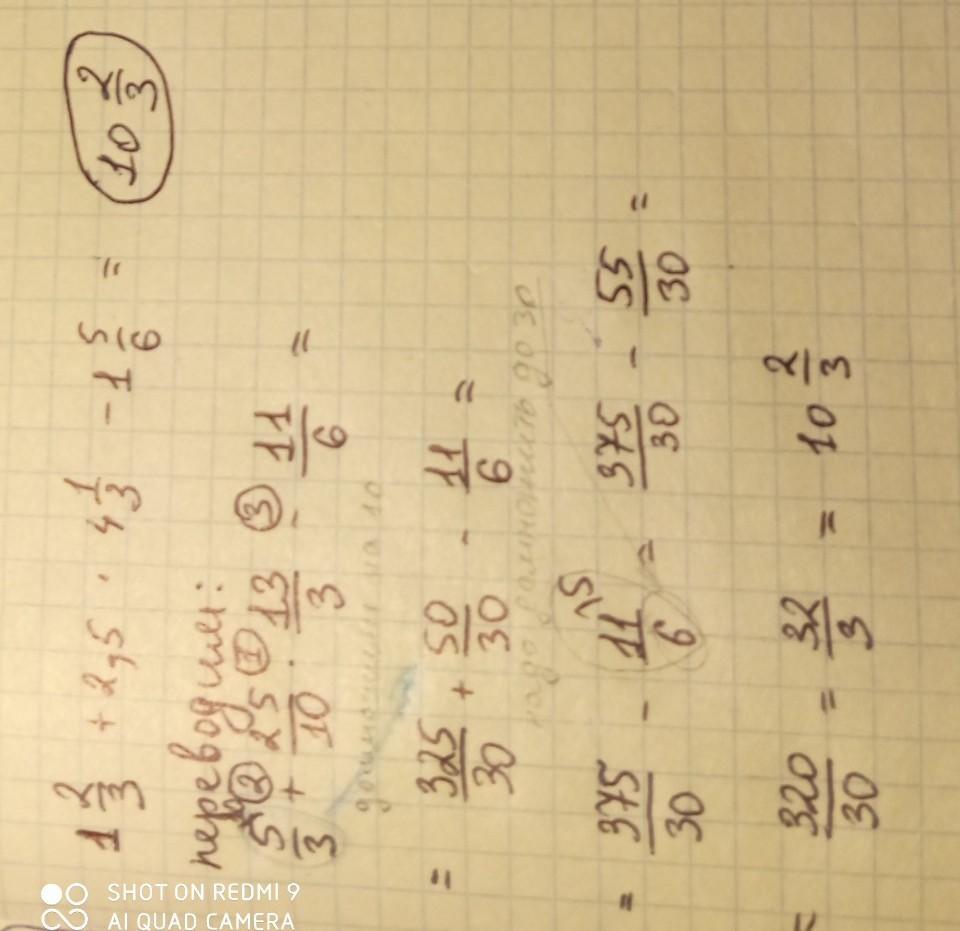 1 2/3 + 2,5 · 4 1/3 - 1 5/6 = 10 2/3
переводим:
5/3 ② + 25/10 ① · 13/3 ③ - 11/6 =
домножили на 10
= 325/30 + 50/30 - 11/6 =
надо домножить до 30
= 375/30 - 11/6 ^5 = 375/30 - 55/30 =
= 320/30 = 32/3 = 10 2/3
SHOT ON REDMI 9
AI QUAD CAMERA